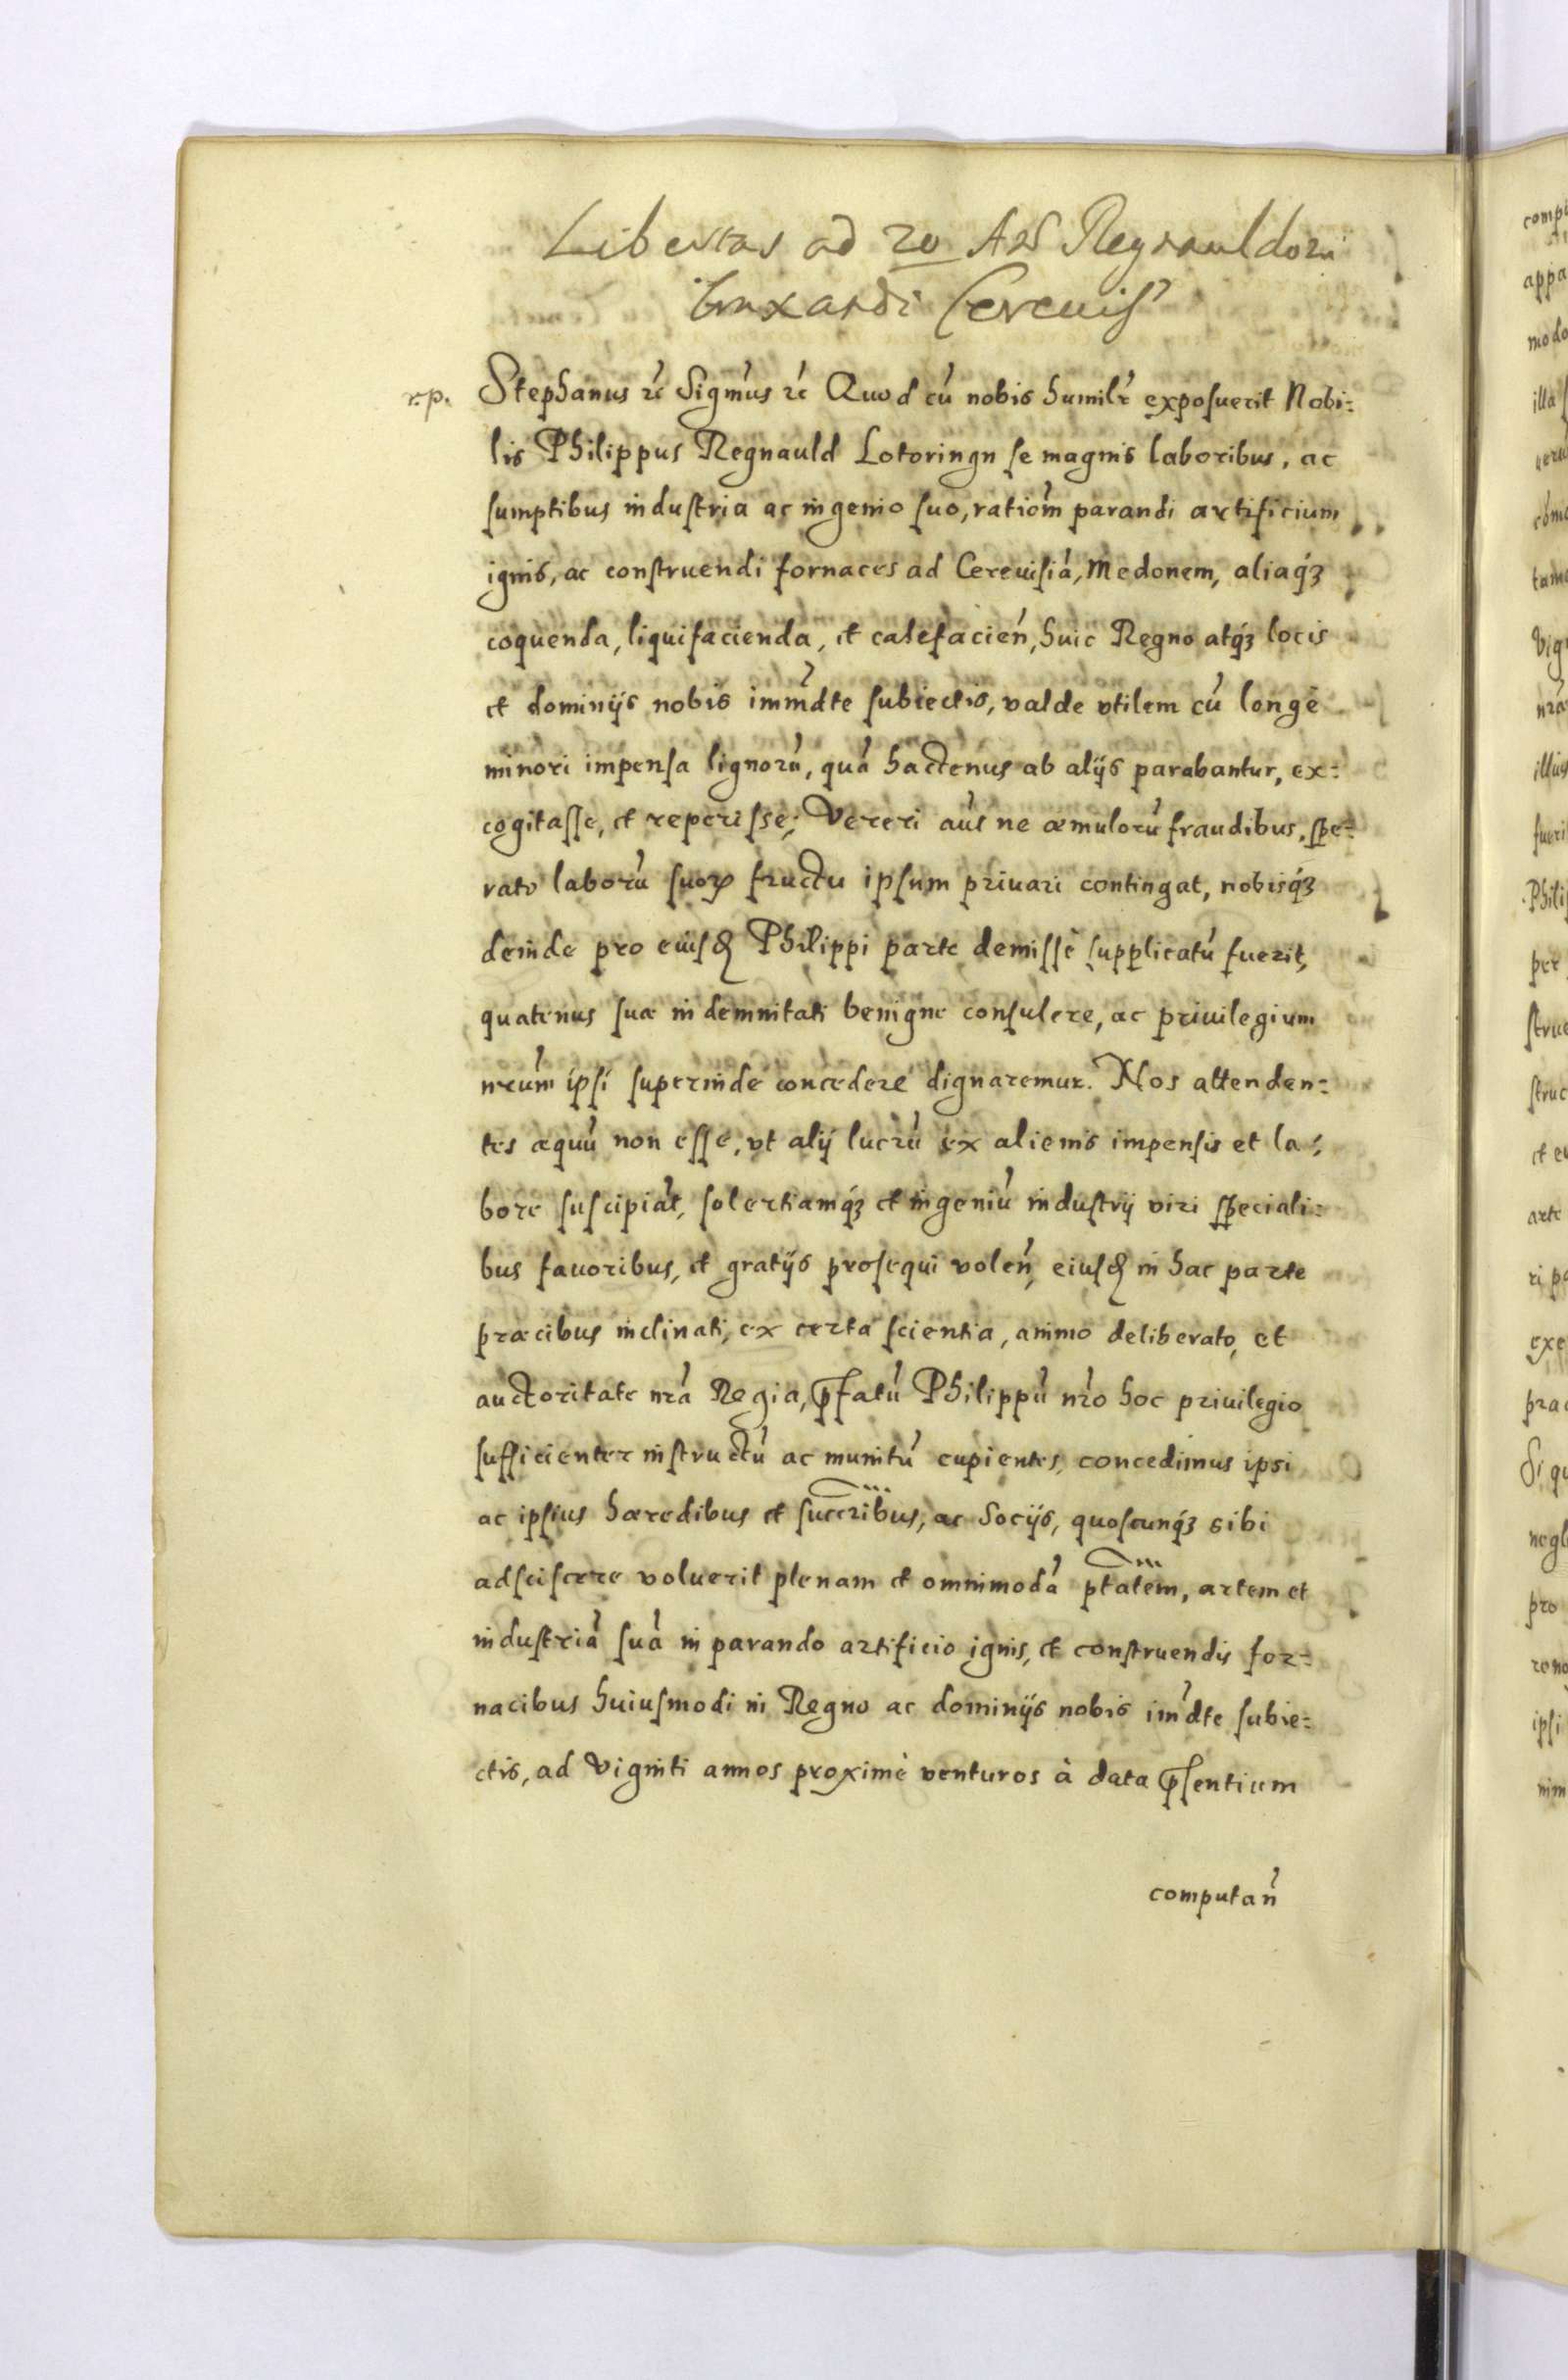 Libertas ad 20 A͠n͠s Regnauldo
braxandi Cerevis
r.p. Stephanus ꝛc̃ Sigm̃us ꝛc̃ Quod cũ nobis humilr̃ exposuerit Nobi=
lis Philippus Regnauld Lotoringn̄ se magnis laboribus, ac
sumptibus industria ac ingenio suo, ratiom̃ parandi artificium
ignis, ac construendi fornaces ad Cereuisiã, Medonem, aliaqꝫ
coquenda, liquifacienda, et calefacien̄, huic Regno atqꝫ locis
et dominijs nobis imm̃dte subiectis, valde vtilem cũ longè
minori impensa lignorũ, quã hactenus ab alijs parabantur, ex=
cogitasse, et reperisse; Vereri aũt ne æmulorũ fraudibus, spe=
rato laborũ suorꝝ fructu ipsum priuari contingat, nobisqꝫ
deinde pro eiusđ Philippi parte demissè supplicatũ fuerit,
quatenus suæ indemnitati benigne consulere, ac priuilegium
nr̃um ipsi superinde concedere dignaremur. Nos attenden=
tes æquũ non esse, vt alij lucrũ ex alienis impensis et la=
bore suscipiãt, solertiamqꝫ et ingeniũ industrij viri speciali=
bus fauoribus, et gratijs prosequi volen̄, eiusđ in hac parte
præcibus inclinati, ex certa scientia, animo deliberato, et
auctoritate nr̃a Regia, p̃fatũ Philippũ nr̃o hoc priuilegio
sufficienter instructũ ac munitũ cupientes, concedimus ipsi
ac ipsius hæredibus et succribus̃, ac Socijs, quoscunqꝫ sibi
adsciscere voluerit plenam et omnimodã ptatem̃, artem et
industriã suã in parando artificio ignis, et construendis for=
nacibus huiusmodi in Regno ac dominijs nobis im̃dte subie=
ctis, ad viginti annos proximè venturos à data p̃sentium
computan̄